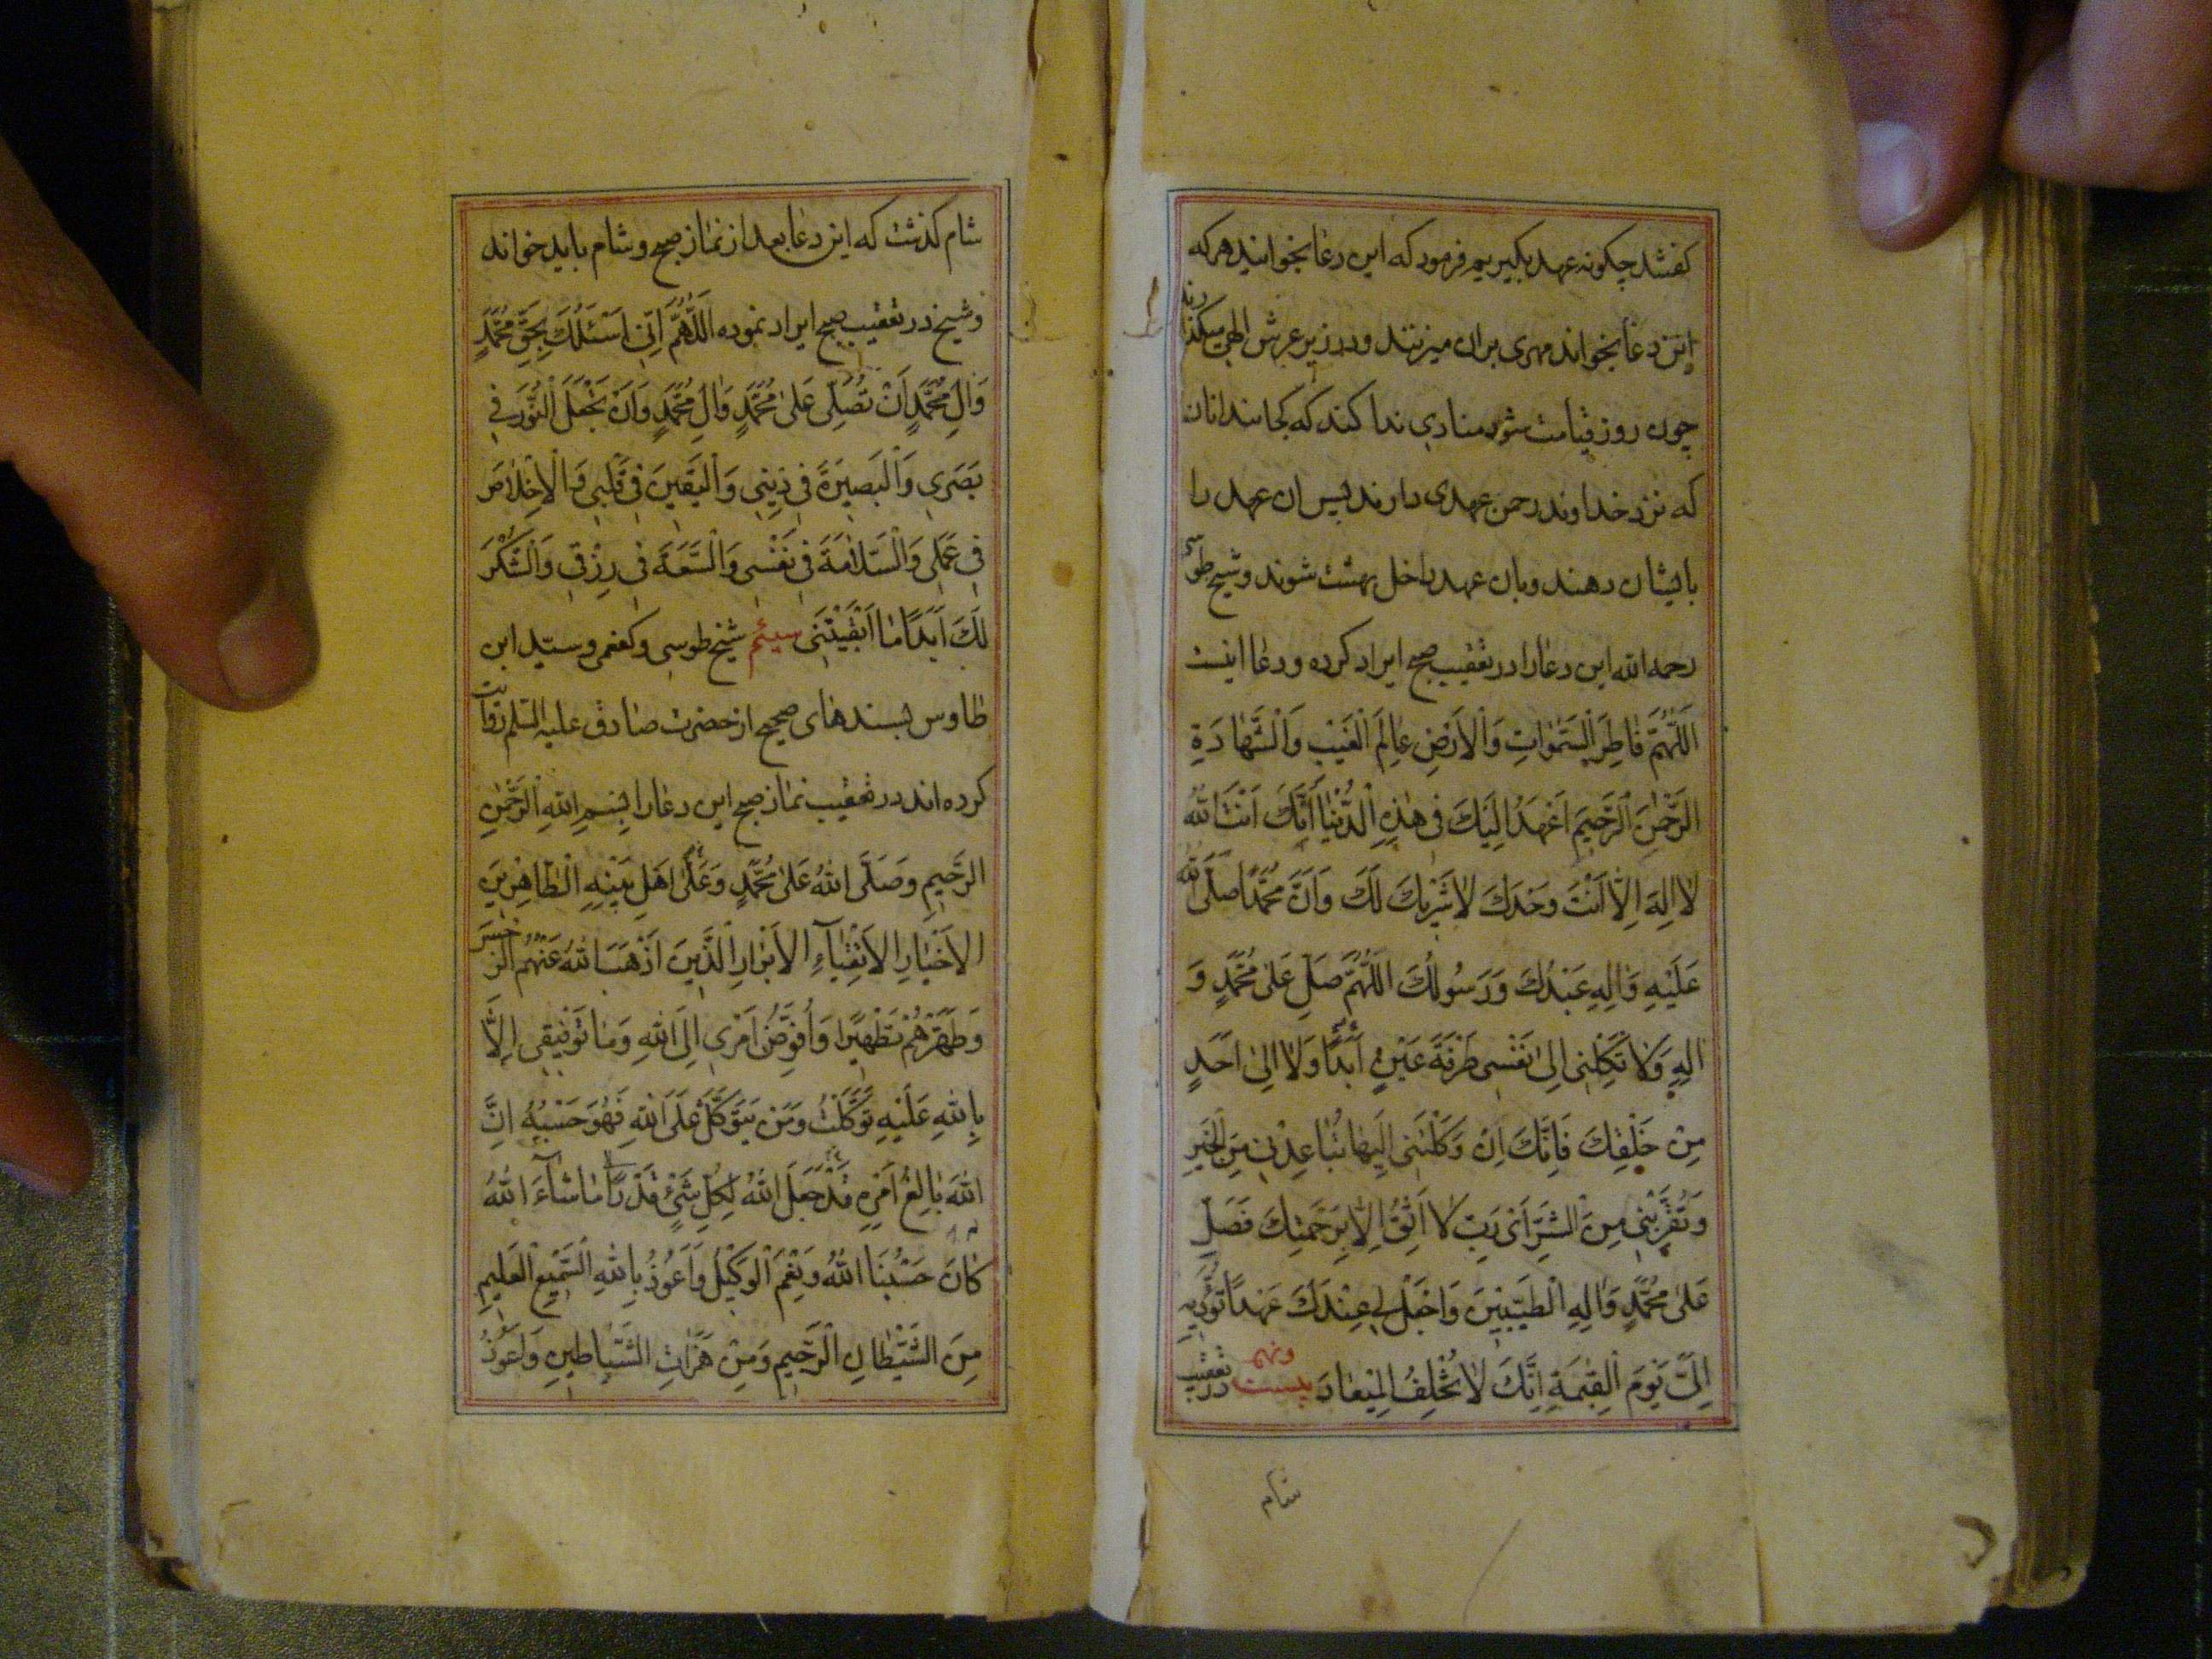 کفتند چکونه عهد بکیریم فرمود که این دعا بخوانید هر که
این دعا بخواند مهری بران میزنند و در زیر عرش الهی میکذارند
چون روز قیامت شود منادی ندا کند که کجایند انان
که نزد خداوند رحمن عهدی دارند پس ان عهد را
بایشان دهند و بان عهد داخل بهشت شوند و شیخ طوسی
رحمه الله این دعا را در تعقیب صبح ایراد کرده و دعا اینست
اَللّٰهُمَّ فَاطِرَ السَّمٰوَاتِ وَالْاَرْضِ عَالِمَ الْغَيْبِ وَالشَّهَادَةِ
الرَّحْمٰنَ الرَّحِيمَ اَعْهَدُ اِلَيْكَ فِي هٰذِهِ الدُّنْيَا اَنَّكَ اَنْتَ اللهُ
لَا اِلٰهَ اِلَّا اَنْتَ وَحْدَكَ لَا شَرِيكَ لَكَ وَاَنَّ مُحَمَّدًا صَلَّى اللهُ
عَلَيْهِ وَاٰلِهِ عَبْدُكَ وَرَسُولُكَ اَللّٰهُمَّ صَلِّ عَلىٰ مُحَمَّدٍ وَ
اٰلِهِ وَلَا تَكِلْنِي اِلىٰ نَفْسِي طَرْفَةَ عَيْنٍ اَبَدًا وَلَا اِلىٰ اَحَدٍ
مِنْ خَلْقِكَ فَاِنَّكَ اِنْ وَكَلْتَنِي اِلَيْهَا تُبَاعِدْنِي مِنَ الْخَيْرِ
وَتُقَرِّبْنِي مِنَ الشَّرِّ اَىْ رَبِّ لَا اَثِقُ اِلَّا بِرَحْمَتِكَ فَصَلِّ
عَلىٰ مُحَمَّدٍ وَاٰلِهِ الطَّيِّبِينَ وَاجْعَلْ لِي عِنْدَكَ عَهْدًا تُؤَدِّيهِ
اِلَىَّ يَوْمَ الْقِيٰمَةِ اِنَّكَ لَا تُخْلِفُ الْمِيعَادَ بیست ونهم در تعقیب
شام
شام کذشت که این دعا بعد از نماز صبح و شام باید خواند
و شیخ در تعقیب صبح ایراد نموده اَللّٰهُمَّ اِنِّي اَسْئَلُكَ بِحَقِّ مُحَمَّدٍ
وَاٰلِ مُحَمَّدٍ اَنْ تُصَلِّي عَلىٰ مُحَمَّدٍ وَاٰلِ مُحَمَّدٍ وَاَنْ تَجْعَلَ النُّورَ فِي
بَصَرِي وَالْبَصِيرَةَ فِي دِينِي وَالْيَقِينَ فِي قَلْبِي وَالْاِخْلَاصَ
فِي عَمَلِي وَالسَّلَامَةَ فِي نَفْسِي وَالسَّعَةَ فِي رِزْقِي وَالشُّكْرَ
لَكَ اَبَدًا مَا اَبْقَيْتَنِي سیئم شیخ طوسی و کفعمی و سید ابن
طاوس بسندهای صحیح از حضرت صادق علیه السلم روایت
کرده اند در تعقیب نماز صبح این دعا را بِسْمِ اللهِ الرَّحْمٰنِ
الرَّحِيمِ وَصَلَّى اللهُ عَلىٰ مُحَمَّدٍ وَعَلىٰ اَهْلِ بَيْتِهِ الطَّاهِرِينَ
الْاَخْيَارِ الْاَتْقِيَاءِ الْاَبْرَارِ الَّذِينَ اَذْهَبَ اللهُ عَنْهُمُ الرِّجْسَ
وَطَهَّرَهُمْ تَطْهِيرًا وَاُفَوِّضُ اَمْرِي اِلَى اللهِ وَمَا تَوْفِيقِي اِلَّا
بِاللهِ عَلَيْهِ تَوَكَّلْتُ وَمَنْ يَتَوَكَّلْ عَلَى اللهِ فَهُوَ حَسْبُهُ اِنَّ
اللهَ بَالِغُ اَمْرِهِ قَدْ جَعَلَ اللهُ لِكُلِّ شَيْءٍ قَدْرًا مَا شَاءَ اللهُ
كَانَ حَسْبُنَا اللهُ وَنِعْمَ الْوَكِيلُ وَاَعُوذُ بِاللهِ السَّمِيعِ الْعَلِيمِ
مِنَ الشَّيْطَانِ الرَّجِيمِ وَمِنْ هَمَزَاتِ الشَّيَاطِينِ وَاَعُوذُ